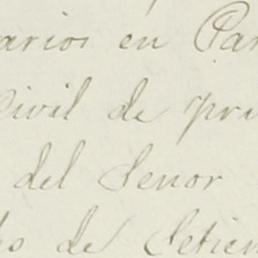 arios en Par
Civil de pri
del Senor
de Setiem